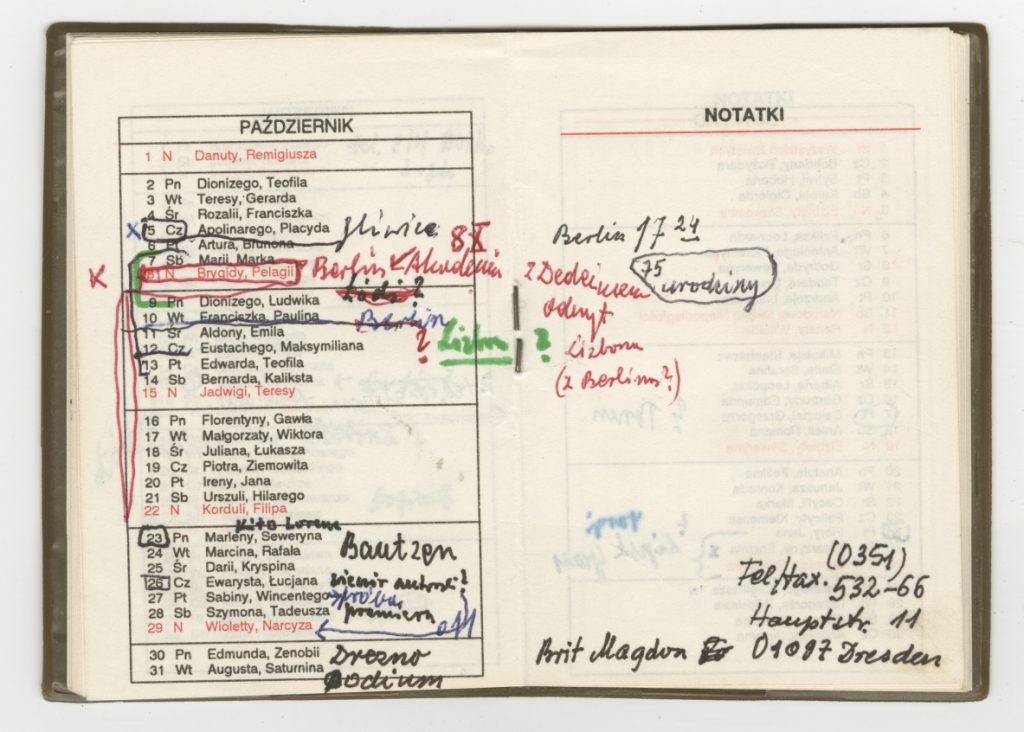 PAŹDZIERNIK
1 N Danuty, Remigiusza
2 Pn Dionizego, Teofila
3 Wt Teresy, Gerarda
4 Śr Rozalii, Franciszka
X 5 Cz Apolinarego, Placyda
6 Pt Artura, Brunona
7 Sb Marii, Marka 8 X
X 8 N Brygidy, Pelagii Berlin Akademia
Łódź?
9 Pn Dionizego, Ludwika
10 Wt Franciszka, Paulina Berlin
11 Śr Aldony, Emila ? Lizbona ?
12 Cz Eustachego, Maksymiliana
13 Pt Edwarda, Teofila
14 Sb Bernarda, Kaliksta
15 N Jadwigi, Teresy
16 Pn Florentyny, Gawła
17 Wt Małgorzaty, Wiktora
18 Śr Juliana, Łukasza
19 Cz Piotra, Ziemowita
20 Pt Ireny, Jana
21 Sb Urszuli, Hilarego
22 N Korduli, Filipa
Kito Lorenc
23 Pn Marleny, Seweryna
24 Wt Marcina, Rafała Bautzen
25 Śr Darii, Kryspina
26 Cz Ewarysta, Łucjana wieczór autorski?
27 Pt Sabiny, Wincentego próba
28 Sb Szymona, Tadeusza premiera
29 N Wioletty, Narcyza
30 Pn Edmunda, Zenobii Drezno
31 Wt Augusta, Saturnina Podium
NOTATKI
Berlin 17 24
75 urodziny
z Dedeciusem
odczyt
Lizbona
(z Berlina?)
(0351)
Tel/fax. 532-66
Hauptstr. 11
Brit Magdon 01097 Dresden